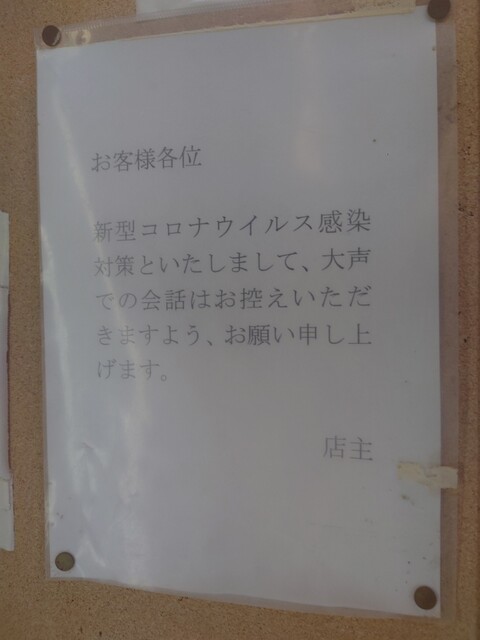 お客様各位
新型コロナウイルス感染
対策といたしまして、大声
での会話はお控えいただ
きますよう、お願い申し上
げます。
店主